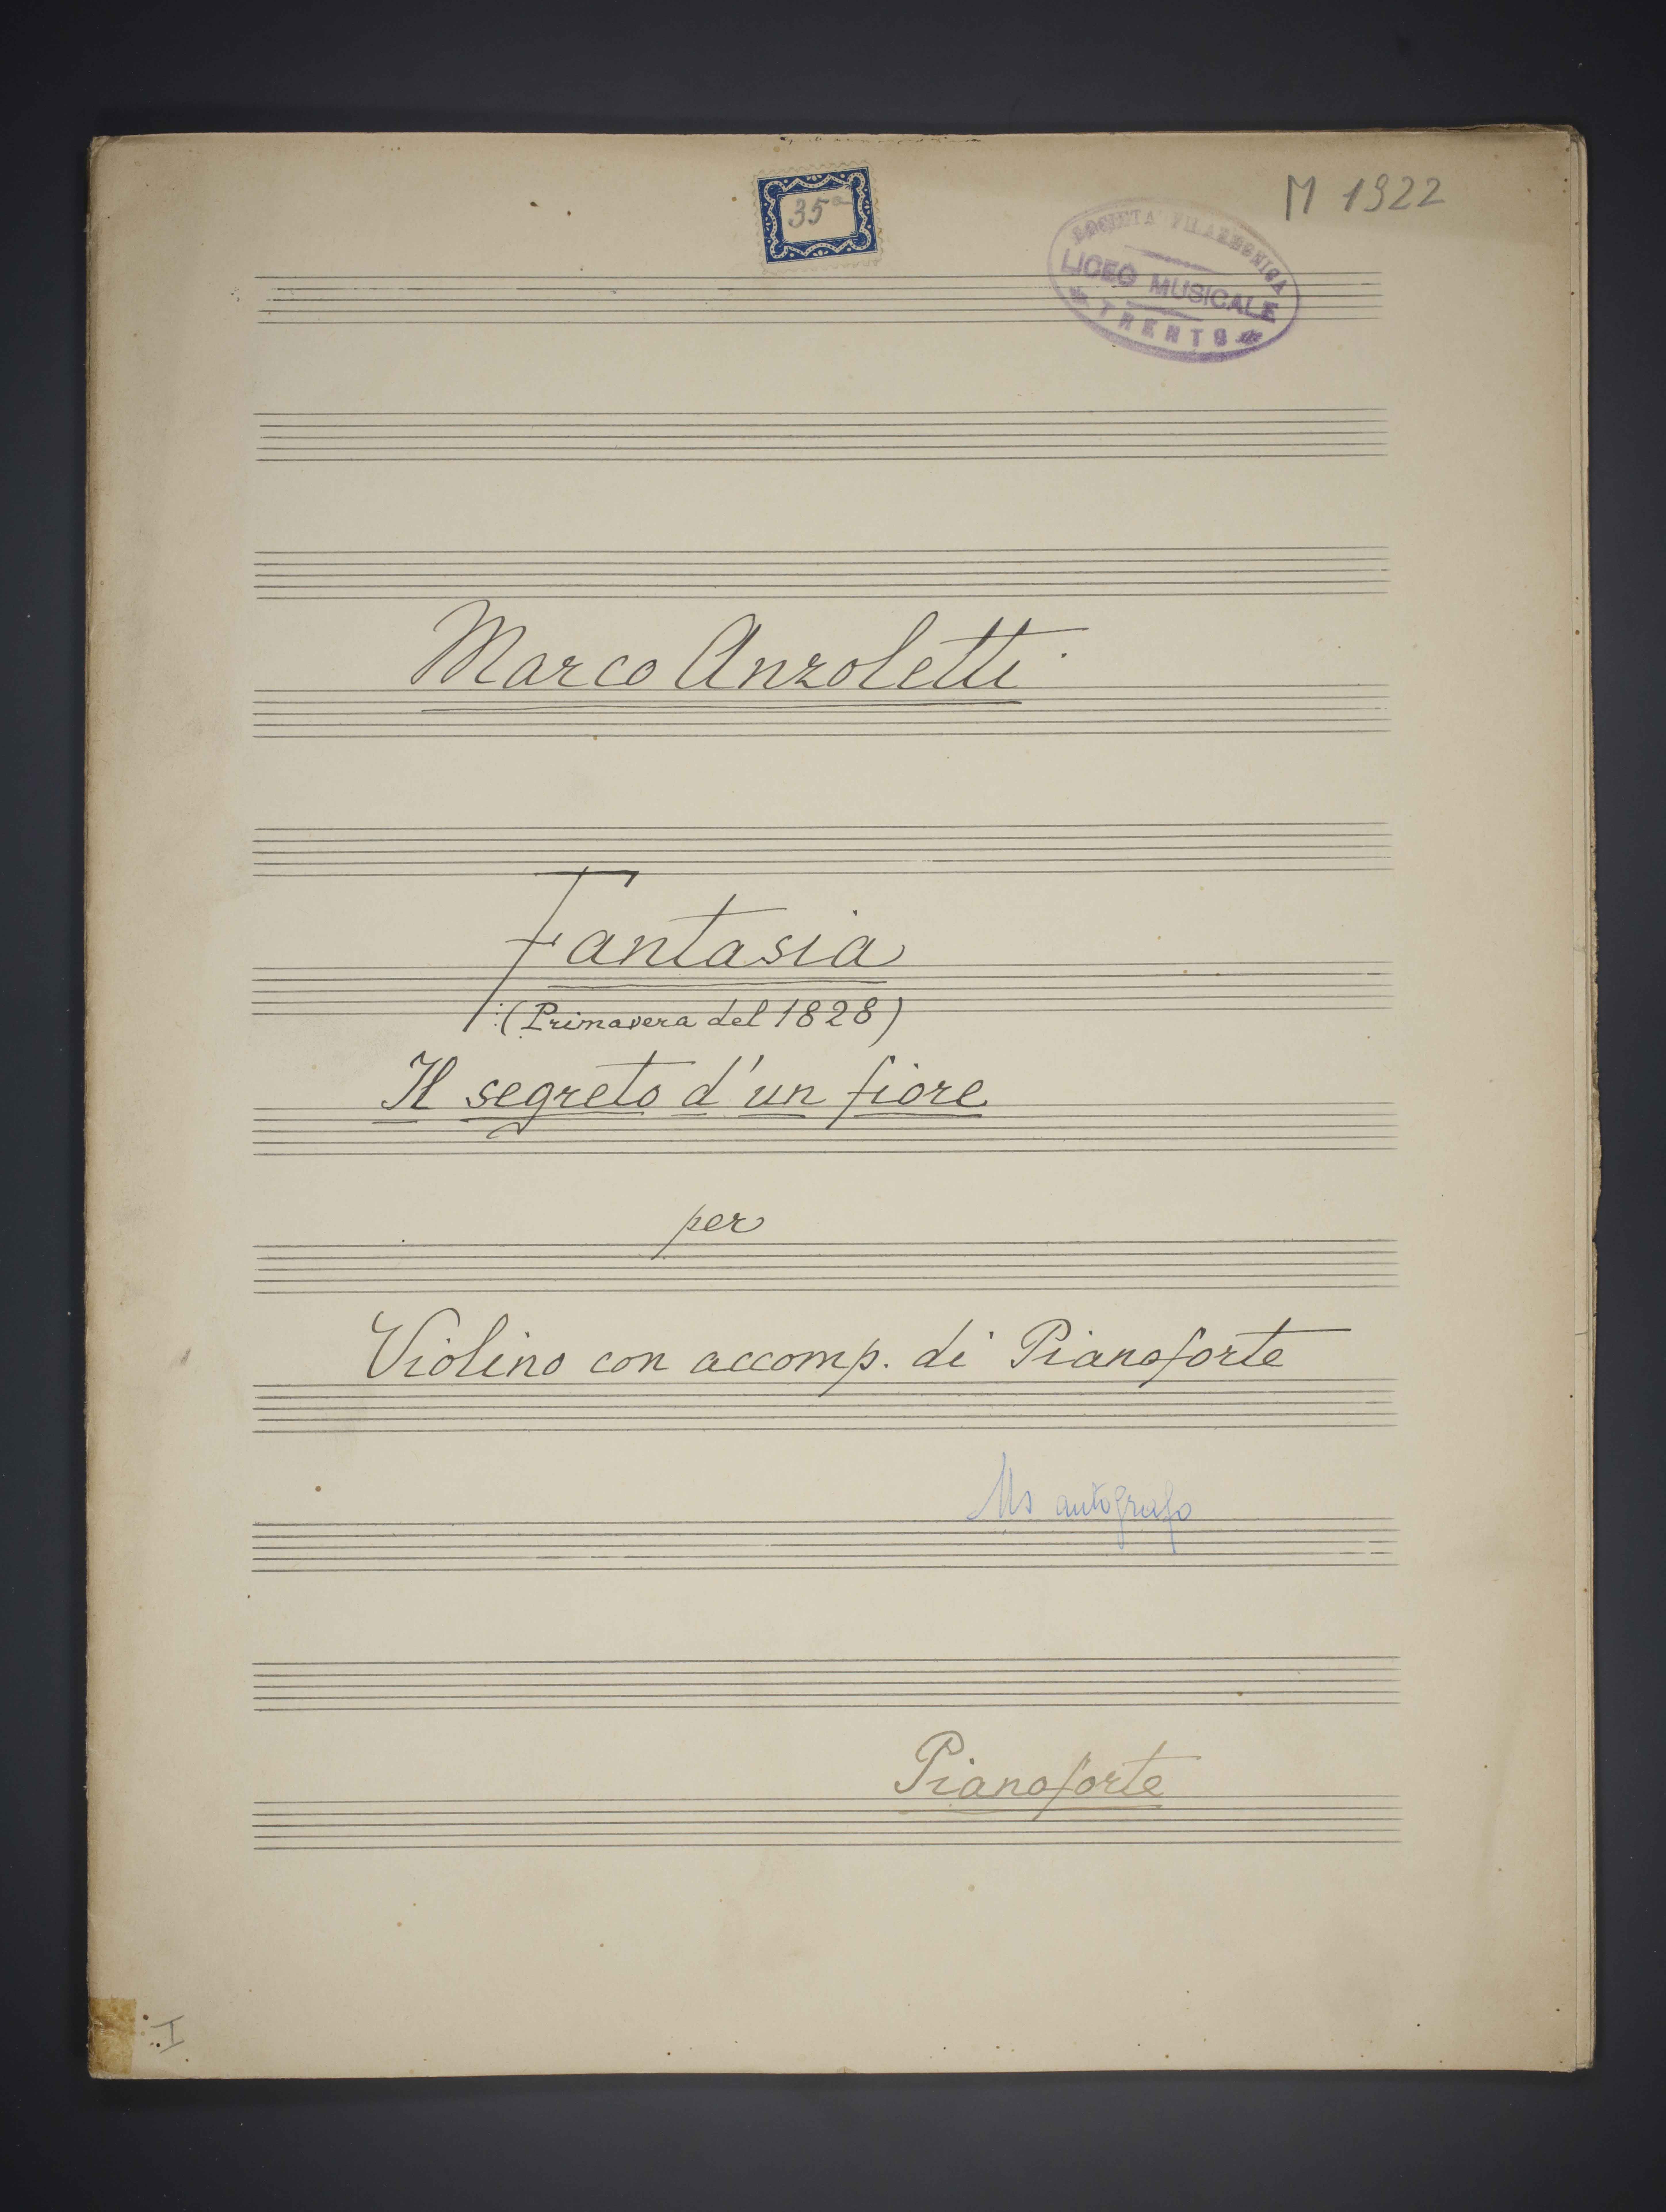 35a
M 1922
SOCIETÀ FILARMONICA
LICEO MUSICALE
TRENTO
Marco Anzoletti
Fantasia
(Primavera del 1828)
Il segreto d'un fiore
per
Violino con accomp. di Pianoforte
Ms autografo
Pianoforte
I